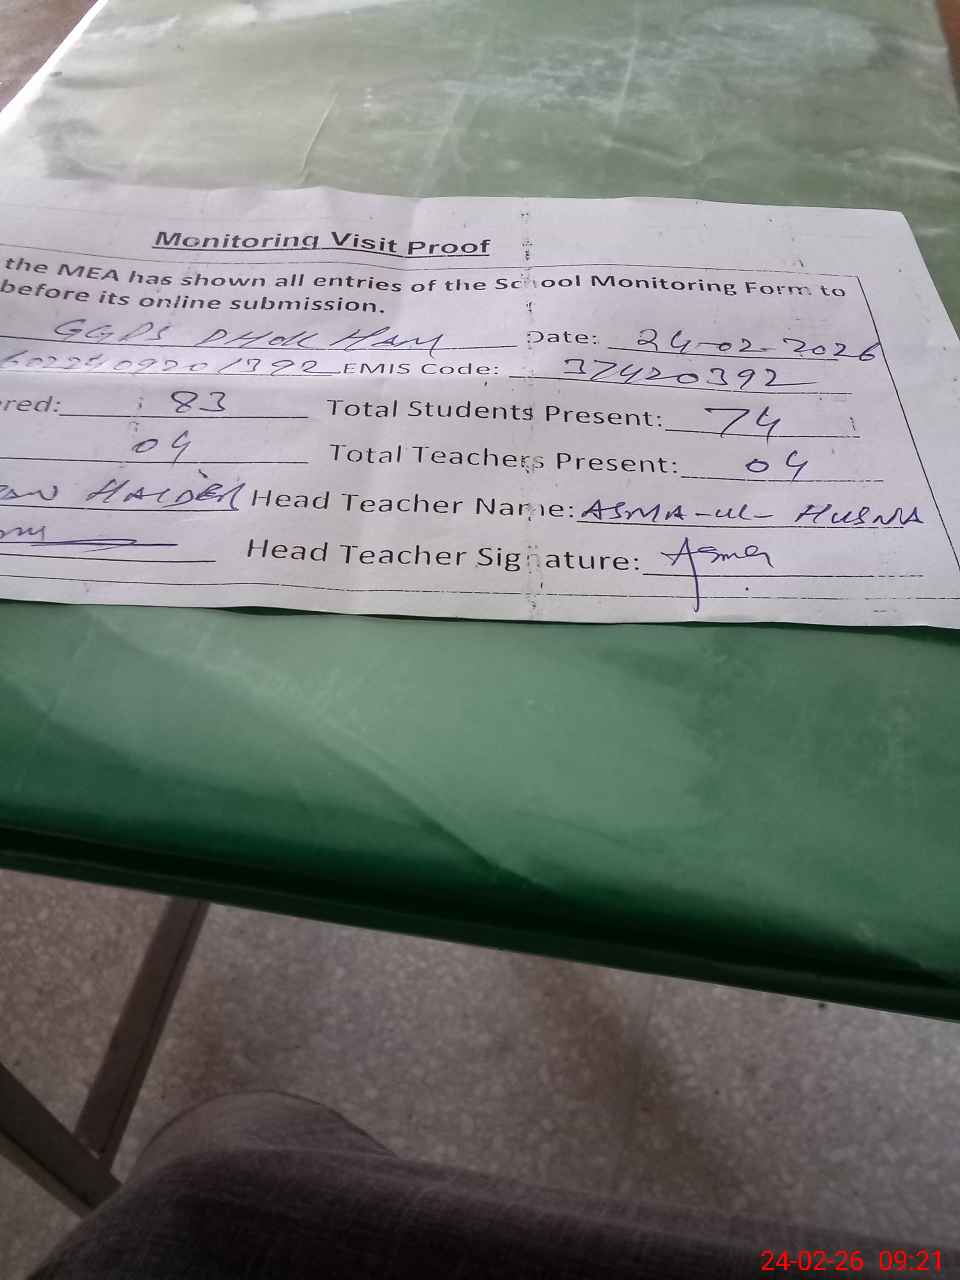 Monitoring Visit Proof
the MEA has shown all entries of the School Monitoring Form to
before its online submission.
GGPS DHOK HAM Date: 24-02-2026
EMIS Code: 37420392
red: 83 Total Students Present: 74
04 Total Teachers Present: 04
HAIDER Head Teacher Name: ASMA-ul-HUSNA
Head Teacher Signature: Asma
24-02-26 09:21